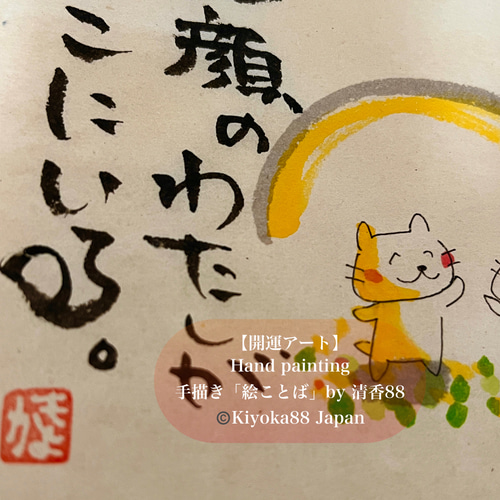 顔のわたしが
こにいる。
きよか
【開運アート】
Hand painting
手描き「絵ことば」by 清香88
©Kiyoka88 Japan